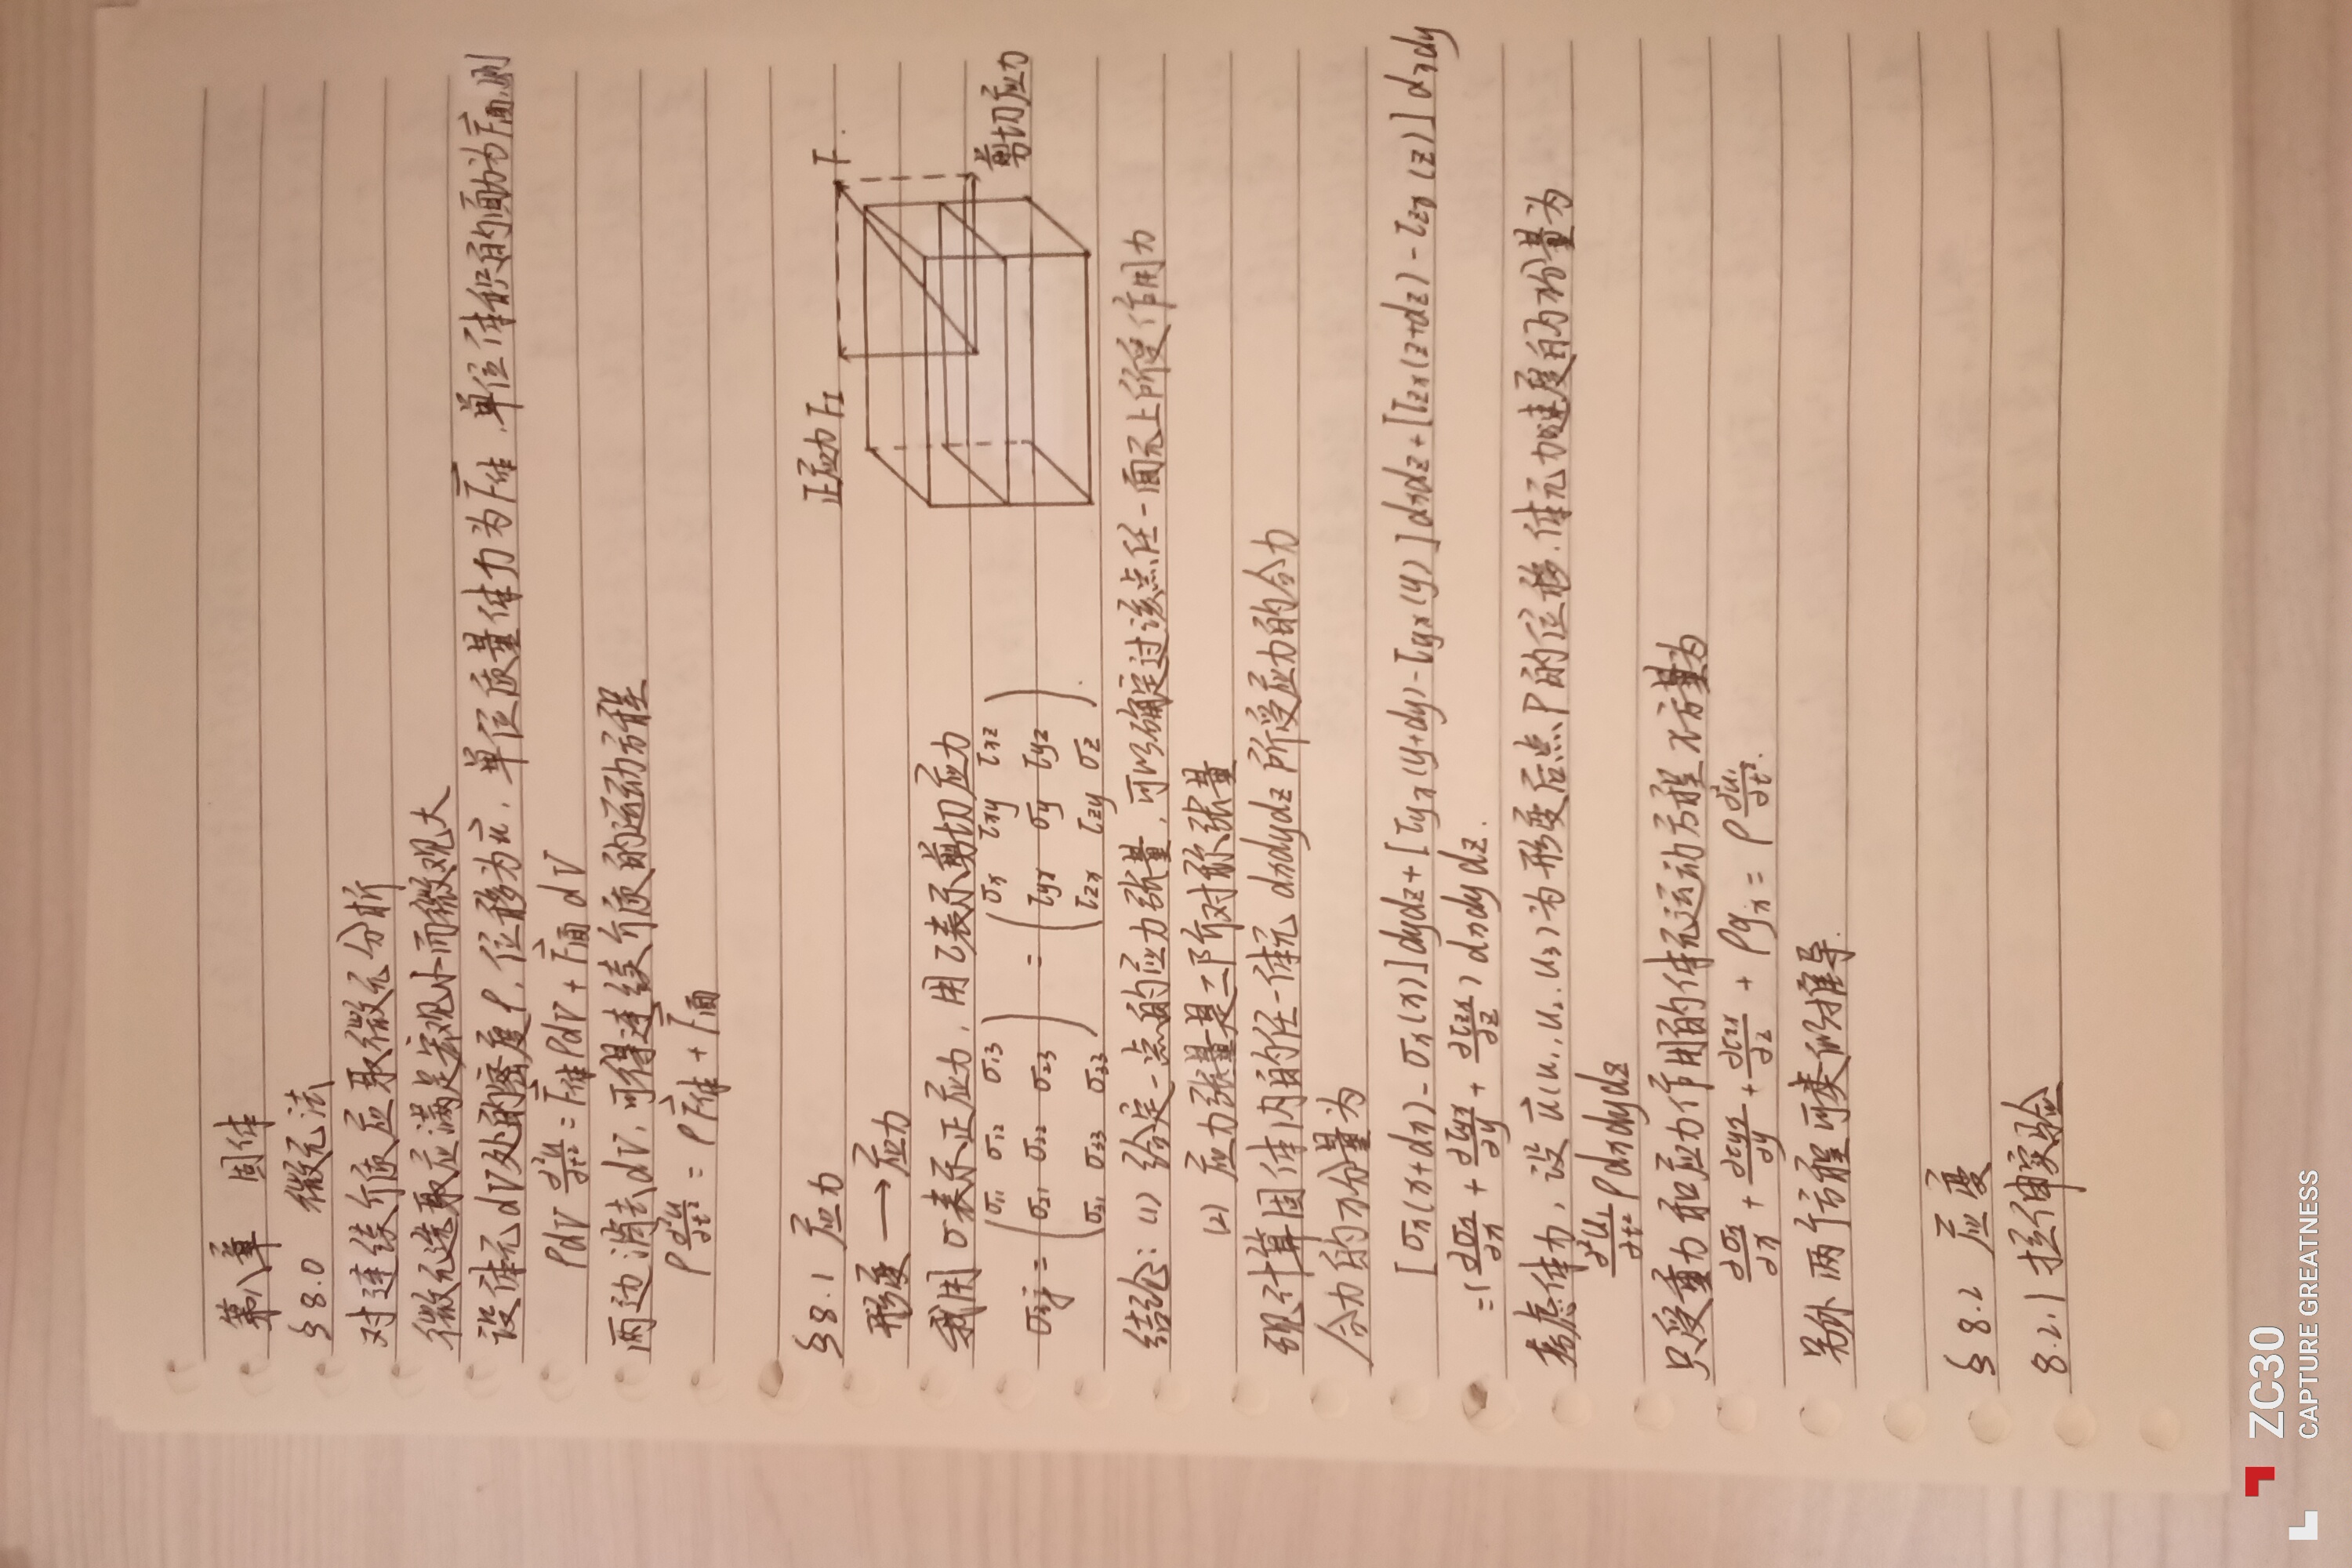 第八章 固体
§8.0 微元法
对连续介质应取微元分析
微元选取应满足宏观小而微观大
设体元dV处的密度ρ,位移为u⃗,单位质量体力为F⃗体,单位体积的面力为F⃗面,则
ρdV ∂²u⃗/∂t² = F⃗体ρdV + F⃗面dV
两边消去dV,可得连续介质的运动方程
ρ ∂²u⃗/∂t² = ρF⃗体 + F⃗面
§8.1 应力
形变 → 应力
正应力 F₁
F
剪切应力
我用σ表示正应力,用τ表示剪切应力
σij = (σ11 σ12 σ13
σ21 σ22 σ23
σ31 σ33 σ33) = (σx τxy τxz
τyx σy τyz
τzx τzy σz).
结论:(1) 给定一点的应力张量,可以确定过该点任一面元上所受作用力
(2) 应力张量是二阶对称张量
现计算固体内的任一体元 dxdydz 所受应力的合力
合力的x分量为
[σx(x+dx)-σx(x)]dydz+[τyx(y+dy)-τyx(y)]dxdz+[τzx(z+dz)-τzx(z)]dxdy
=(∂σx/∂x + ∂τyx/∂y + ∂τzx/∂z)dxdydz.
考虑体力,设u⃗(u₁,u₂,u₃)为形变后点P的位移.体元加速度的x分量为
∂²u₁/∂t² ρdxdydz
只受重力和应力作用的体元运动方程x方量为
∂σx/∂x + ∂τyx/∂y + ∂τzx/∂z + ρgx = ρ ∂²u₁/∂t².
另外两个方程可类似推导.
§8.2 应变
8.2.1 拉伸实验
ZC30
CAPTURE GREATNESS